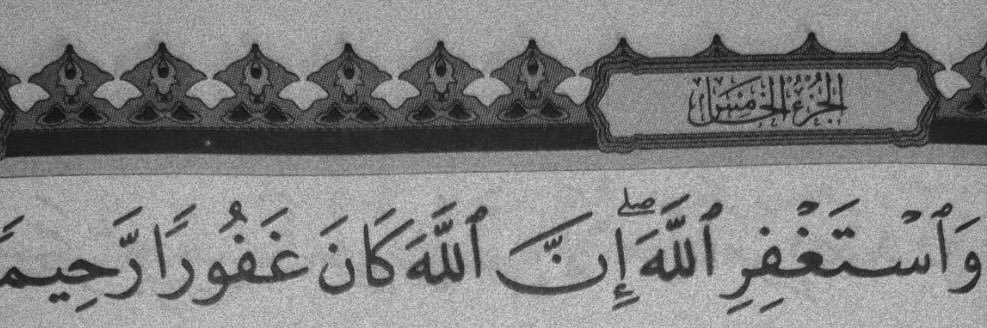 الجزء الخامس
وَٱسْتَغْفِرِ ٱللَّهَ ۖ إِنَّ ٱللَّهَ كَانَ غَفُورًا رَّحِيمًا